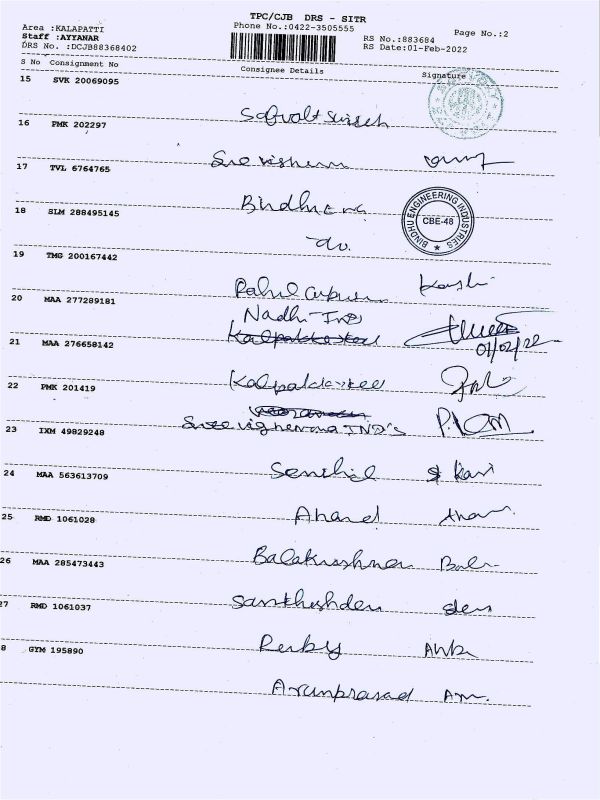 TPC/CJB DRS - SITR
Area :KALAPATTI
Phone No.:0422-3505555
Page No.:2
Staff :AYYANAR
RS No.:883684
DRS No. :DCJB88368402
RS Date:01-Feb-2022
S No Consignment No Consignee Details Signature
15 SVK 20069095
16 PMK 202297
17 TVL 6764765
BINDHU ENGINEERING INDUSTRIES
CBE-48
18 SLM 288495145
do.
19 TMG 200167442
Rahul
20 MAA 277289181
Nadhi-IND
Kalpakkesteel
01/02/22
21 MAA 276658142
Kalpakkesteel
22 PMK 201419
IND's
23 IXM 49829248
Senthil
24 MAA 563613709
Anand
25 RMD 1061028
Balakrishnan Bala
26 MAA 285473443
27 RMD 1061037
Ruby
8 GYM 195890
Arunprasad